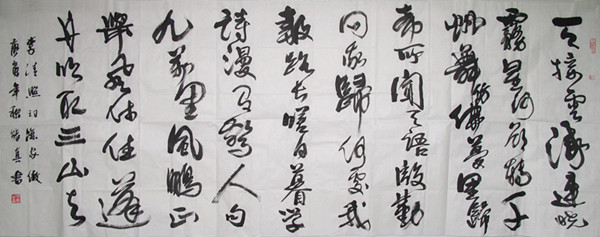 天接雲濤連曉
霧星河欲轉千
帆舞彷彿夢魂歸
帝所聞天語殷勤
問我歸何處我
報路長嗟日暮學
詩漫有驚人句
九萬里風鵬正
舉風休住蓬
舟吹取三山去
李清照詞漁家傲
庚寅年秋書